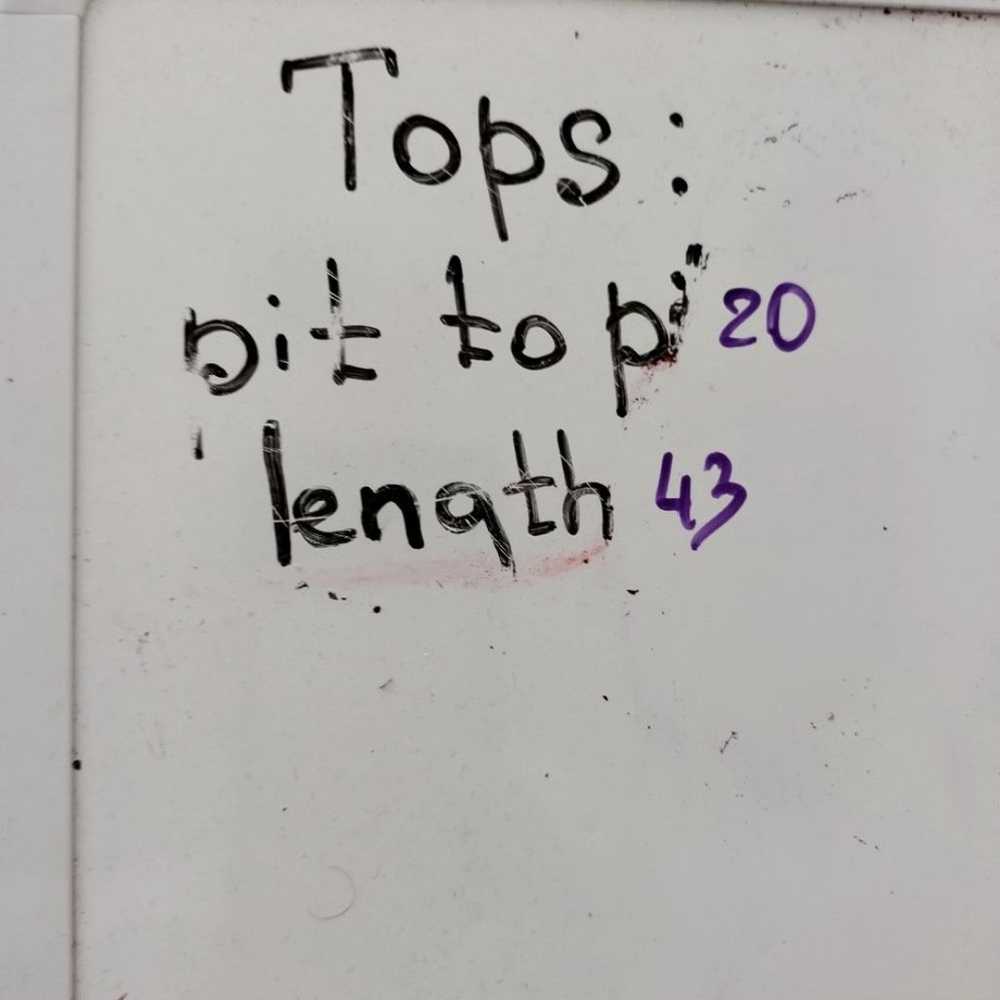 Tops:
pit to pi 20
length 43